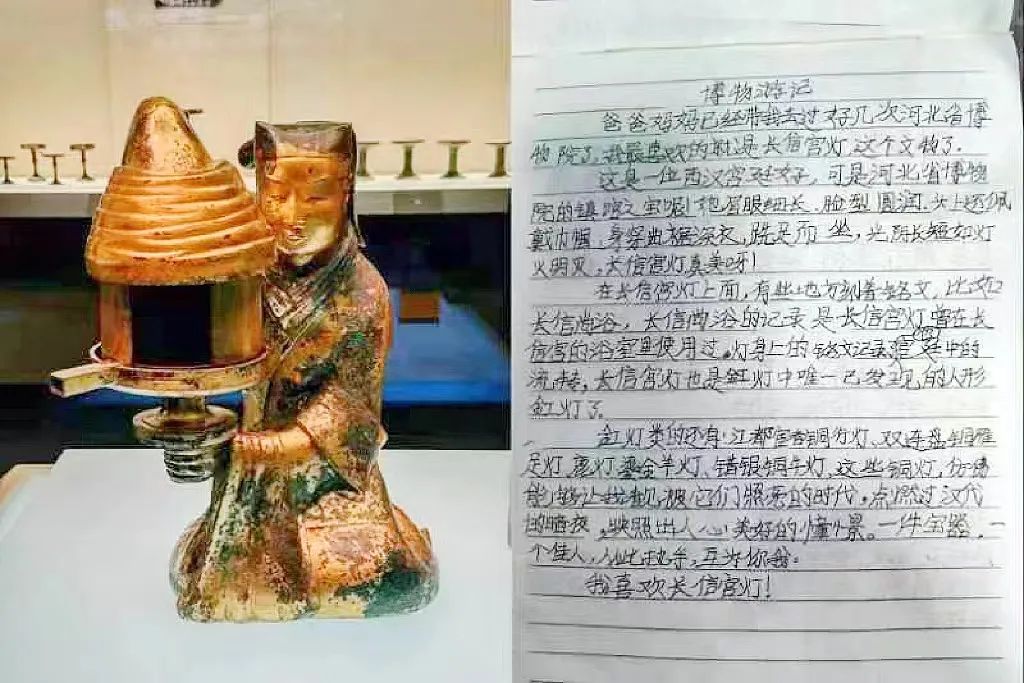 博物游记
爸爸妈妈已经带我去过好几次河北省博
物院了,我最喜欢的就是长信宫灯这个文物了.
这是一位西汉宫廷女子,可是河北省博物
院的镇院之宝呢!她眉眼细长、脸型圆润.头上还佩
戴巾帼,身穿曲裾深衣,跣足而坐,光阴长短如灯
火明灭,长信宫灯真美呀!
在长信宫灯上面,有些地方刻着铭文,比如
长信尚浴,长信尚浴的记录是长信宫灯曾在长
信宫的浴室里使用过。灯身上的铭文记录 中的
流转,长信宫灯也是缸灯中唯一已发现的人形
缸灯了.
缸灯类的还有:江都宦者铜行灯、双连盘铜雁
足灯、豪灯、鎏金羊灯、错银铜牛灯,这些铜灯,仿佛
能够让我触 被它们照亮的时代,点燃过汉代
的暗夜,映照出人心美好的憧憬。一件宝器,一
个佳人,
我喜欢长信宫灯!